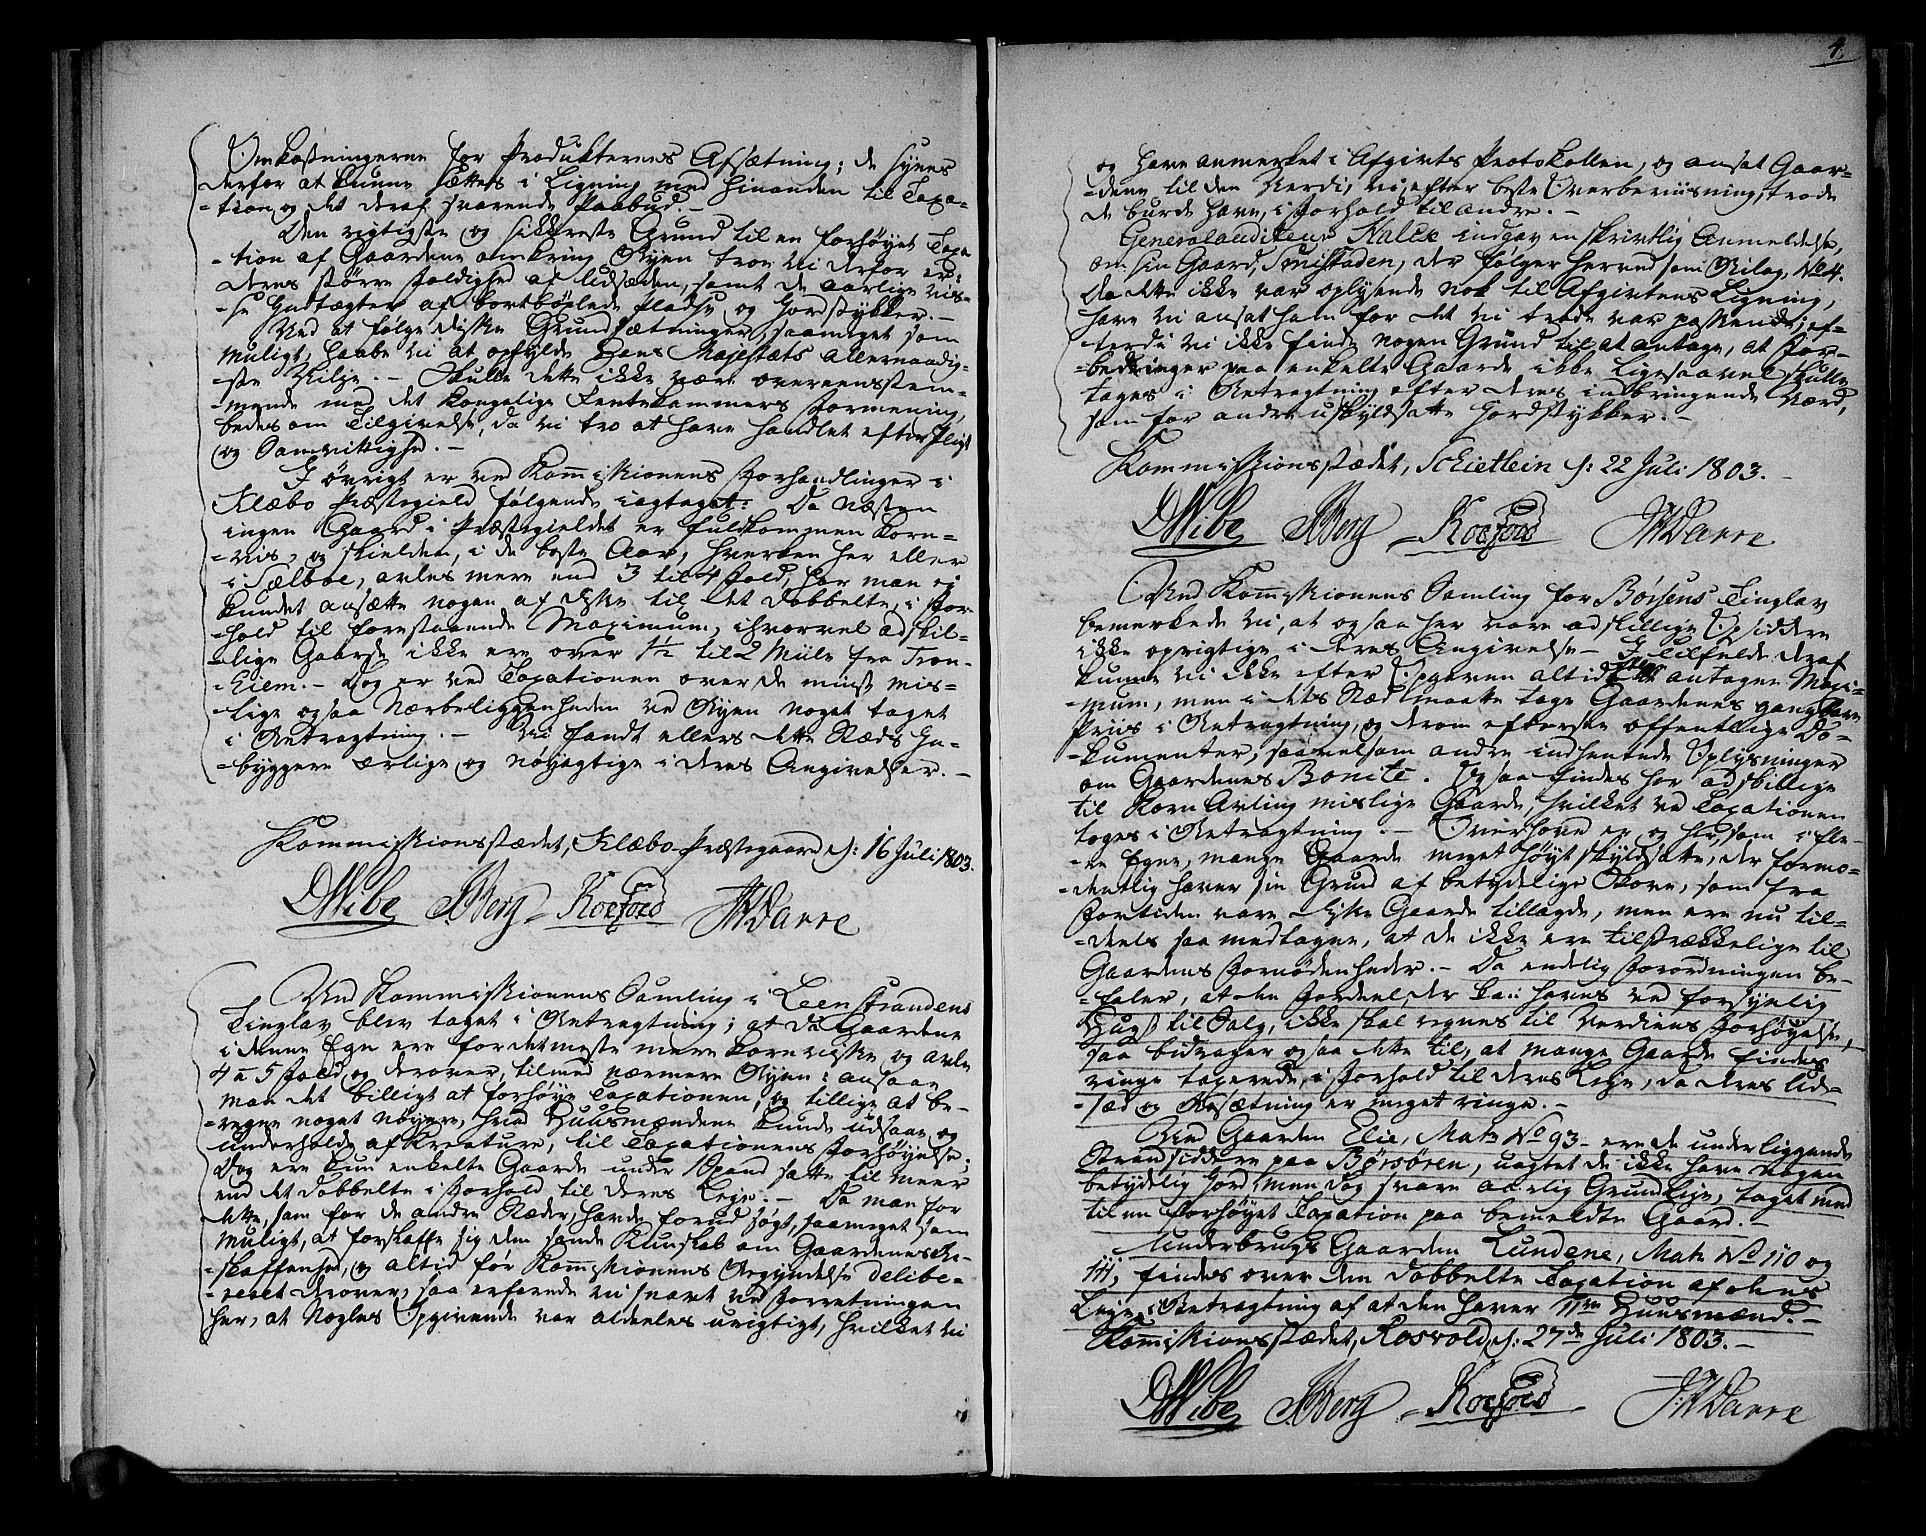 Omkostningerne for Produkternes Afsætning; de synes
derfor at kunne sættes i Ligning med hinanden til Taxa-
-tion og det deraf svarende Paabud.-
Den rigtigste og sikkreste Grund til en forhøyet Taxa
-tion af Gaardene omkring Byen troer vi derfor er:
deres større Foldighed af Udsæden, samt de aarlige vis-
-se Indtægter af bortbøxlede Pladse og Jordstykker.-
Ved at følge disse Grundsætninger, saameget som
muligt, haabe vi at opfylde Hans Majestæts allernaadig-
-ste Villie.- Skulle dette ikke være overeensstem-
-mende med det kongelige Rentekammers Formening,
bedes om Tilgivelse, da vi tro at have handlet efter Pligt
og Samvittighed.-
I øvrigt er ved Kommissionens Forhandlinger i
Klæbo Præstegield følgende iagttaget: Da næsten
ingen Gaard i Præstegieldet er fuldkommen Korn-
-vis, og skielden, i de beste Aar, hverken her eller
i Sælboe, avles mere end 3 til 4 Fold, har man ei
kundet ansætte nogen af disse til det dobbelte, i For-
-hold til forestaaende Maximum, ihvorvel adskil-
-lige Gaarde ikke ere over 1½ til 2 Miile fra Tron-
-hiem.- Dog er ved Taxationen over de mindst mis-
-lige ogsaa Nærbeliggenheden ved Byen noget taget
i Betragtning.- Vi fandt ellers dette Stæds In-
-byggere ærlige og nøyagtige i deres Angivelser.-
Kommissionsstædet, Klæbo Præstegaard d: 16 Juli 1803.
DWibe JBerg - Koefoed JKDarre
Ved Kommissionens Samling i Leenstrandens
Tinglav blev taget i Betragtning; at da Gaardene
i denne Egn ere for det meste mere kornvisse, og avle
4 a 5 Fold og derover, tilmed nærmere Byen: ansaae
man det billigt at forhøye Taxationen, og tillige at be-
-regne noget nøyere, hvad Huusmændene kunde udsaae og
underholde af Kreature, til Taxationens Forhøyelse;
Dog ere kun enkelte Gaarde under 1 Spand satte til meer
end det dobbelte i Forhold til deres Leye.- Da man for
dette, som for de andre Stæder, havde forud søgt, saameget som
muligt, at forskaffe sig den sande Kundskab om Gaardenes Be-
-skaffenhed, og altid før Kommissionens Begyndelse delibe-
-reret derover, saa erfarede vi snart ved Forretningen
her, at Nogles Opgivende var aldeles urigtigt, hvilket vi
4.
og have anmerket i Afgivts Protokollen, og ansat Gaar-
-dene til den Verdi, vi, efter beste Overbeviisning, trode
de burde have, i Forhold til andre.-
Generalauditeur Kalee indgav en skrivtlig Anmeldelse,
om sin Gaard, Smistaden, der følger herved som Bilag No 4.
Da dette ikke var oplysende nok til Afgivtens Ligning,
have vi ansat ham for det vi trode var passende; ef-
-terdi vi ikke finde nogen Grund til at antage, at For-
-bedringer paa enkelte Gaarde ikke ligesaavel skulle
tages i Betragtning efter deres indbringende Værd,
som for andre uskyldsatte Jordstykker.-
Kommissionsstædet, Schietlein d: 22 Juli 1803.-
DWibe JBerg - Koefoed JKDarre
Ved Kommissionens Samling for Børsens Tinglav
bemerkede vi, at ogsaa her vare adskillige Opsiddere
ikke oprigtige i deres Angivelse.- I Tilfælde deraf
kunne vi ikke efter Opgaven altid antage Maxi-
-mum, men i dets Stæd maatte tage Gaardenes gangbare
Priis i Betragtning, og derom efterse offentlige Do-
-kumenter, saavelsom andre indhentede Oplysninger
om Gaardenes Bonite. Ogsaa findes her adskillige
til Korn Avling mislige Gaarde, hvilket ved Taxationen
toges i Betragtning.- Overhovet er og her, som i fle-
-re Egne, mange Gaarde meget høyt skyldsatte, der formo-
-dentlig haver sin Grund af betydelige Skove, som fra
Fortiden vare disse Gaarde tillagde, men ere nu til-
-deels saa medtagne, at de ikke ere tilstrækkelige til
Gaardens Fornødenheder.- Da endelig Forordningen be-
-faler, at den Fordeel, der kan haves ved forsynlig
Hugst til Salg, ikke skal regnes til Verdiens Forhøyelse,-
saa bidrager ogsaa dette til, at mange Gaarde findes
ringe taxerede, i Forhold til deres Leye, da deres Ud-
-sæd og Besætning er meget ringe.-
Ved Gaarden Elie, Mat: No 93- ere de underliggende
Strandsiddere paa Børsören, uagtet de ikke have nogen
betydelig Jord, men dog svare aarlig Grundleye, taget med
til en forhøyet Taxation paa bemeldte Gaard.-
Underbrugs Gaarden Lundene, Mat: No 110 og
111, findes over den dobbelte Taxation af dens
Leye, i Betragtning af at den haver 11ve Huusmænd.-
Kommissionsstædet, Rosvold, d: 27de Juli 1803.-
DWibe JBerg - Koefoed - JKDarre